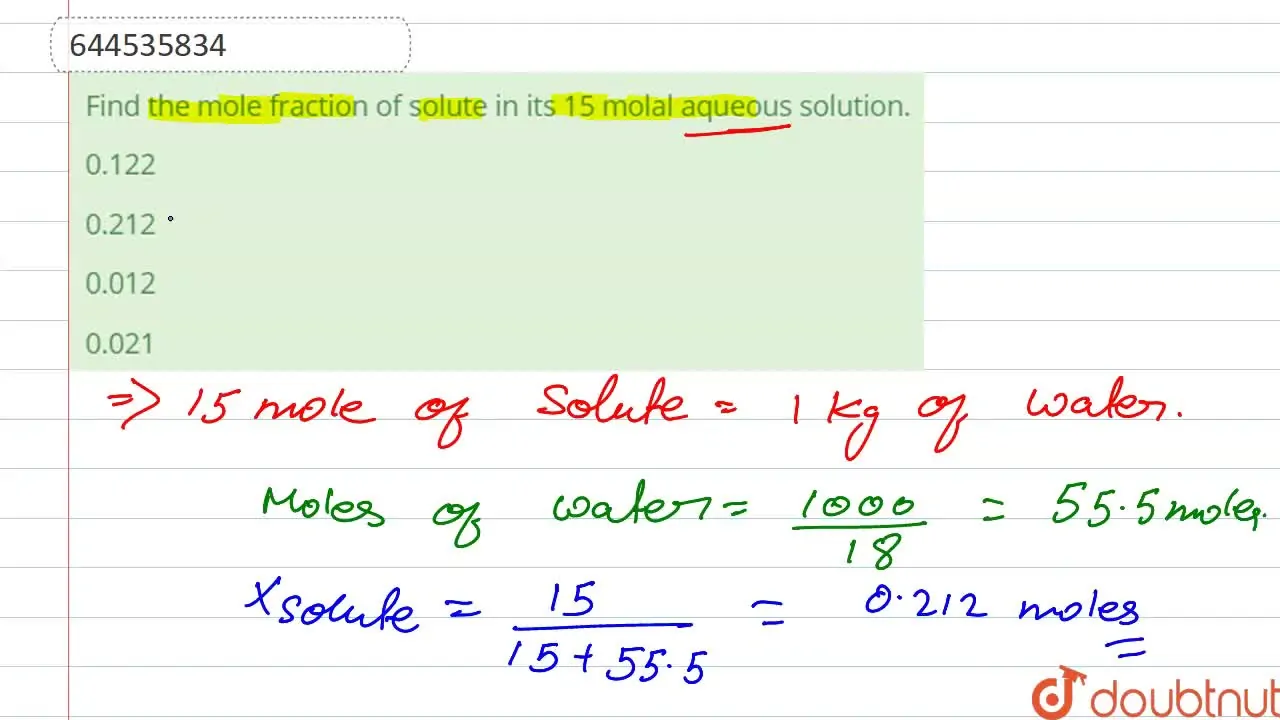 644535834
Find the mole fraction of solute in its 15 molal aqueous solution.
0.122
0.212
0.012
0.021
=> 15 mole of Solute = 1 kg of water.
Moles of water = 1000/18 = 55.5 moles.
X solute = 15/15+55.5 = 0.212 moles
doubtnut